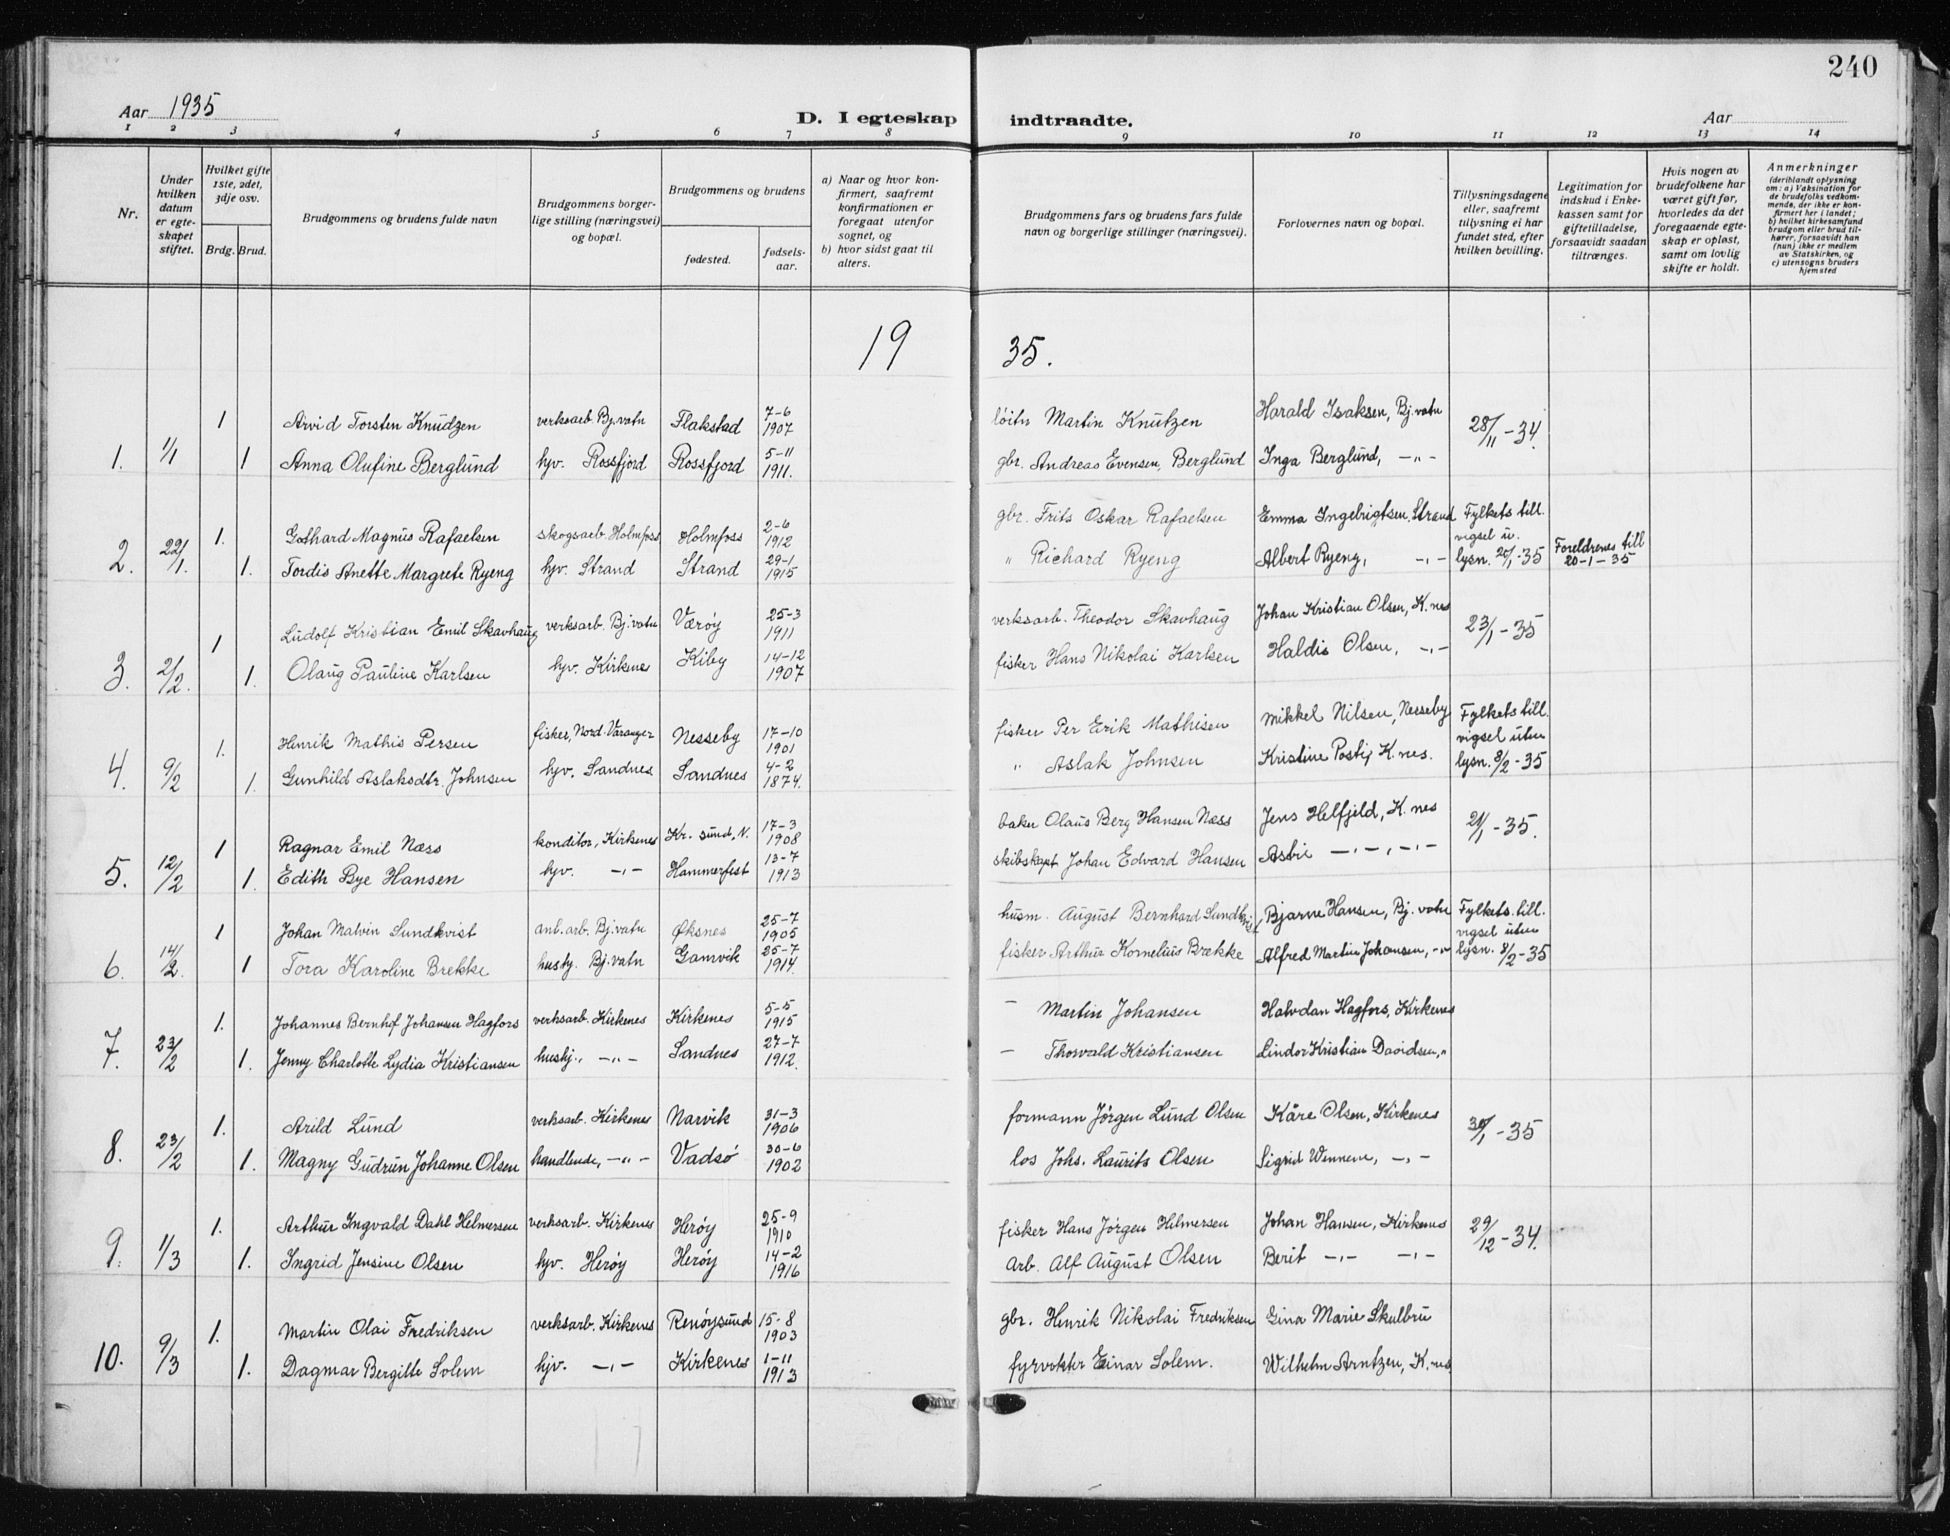 240
Aar 1935
D. I egteskap indtraadte.
Aar
1 2 3 4 5 6 7 8 9 10 11 12 13 14
Nr.
Under hvilken datum er egteskapet stiftet.
Hvilket gifte 1ste, 2det, 3dje osv.
Brdg. Brud.
Brudgommens og brudens fulde navn
Brudgommens borgerlige stilling (næringsvei) og bopæl.
Brudgommens og brudens
fødested.
fødselsaar.
a) Naar og hvor konfirmert, saafremt konfirmationen er foregaat utenfor sognet, og
b) hvor sidst gaat til alters.
Brudgommens fars og brudens fars fulde navn og borgerlige stillinger (næringsvei).
Forlovernes navn og bopæl.
Tillysningsdagene eller, saafremt tillysning ei har fundet sted, efter hvilken bevilling.
Legitimation for indskud i Enkekassen samt for giftetilladelse, forsaavidt saadan tiltrænges.
Hvis nogen av brudefolkene har været gift før, hvorledes da det foregaaende egteskap er opløst, samt om lovlig skifte er holdt.
Anmerkninger
(deriblandt oplysning om: a) Vaksination for de brudefolks vedkommende, der ikke er konfirmert her i landet; b) hvilket kirkesamfund brudgom eller brud tilhører, forsaavidt han (hun) ikke er medlem av Statskirken, og c) utensogns bruders hjemsted
19 35.
1. 1/1 1 Arvid Torsten Knudzen verksarb. Bj.vatn Flakstad 7-6 1907 Martin Knutzen Harald Isaksen, Bj.vatn 28/11-34.
1 Anna Olufine Berglund hjv. Rossfjord Rossfjord 5-11 1911. gbr. Andreas Evensen, Berglund Inga Berglund, -"-
2. 22/1. 1. Gothard Magnus Rafaelsen skogsarb. Holmfoss Holmfoss 2-6 1912 gbr. Frits Oskar Rafaelsen Emma Ingebrigtsen, Strand Fylkets till. vigsel u. lysn. 20/1-35 Foreldrenes till 20-1-35
1. Tordis Anette Margrete Ryeng hjv. Strand Strand 29-1 1915 " Richard Ryeng Albert Ryeng, -"-
3. 2/2. 1 Ludolf Kristian Emil Skavhaug verksarb. Bj.vatn Værøy 25-3 1911 verksarb. Theodor Skavhaug Johan Kristian Olsen, K.nes 23/1-35
1. Olaug Pauline Karlsen hjv. Kirkenes Kiby 14-12 1907 fisker Hans Nikolai Karlsen Haldis Olsen, -"-
4. 9/2 1. Henrik Mathis Persen fisker, Nord-Varanger Nesseby 17-10 1901 fisker Per Erik Mathisen Mikkel Nilsen, Nesseby Fylkets till. vigsel uten lysn. 8/2-35
1. Gunhild Aslaksdtr. Johnsen hjv. Sandnes Sandnes 4-2 1874. " Aslak Johnsen Kristine Postij K.nes.
5. 12/2 1 Ragnar Emil Næss konditor, Kirkenes Kr. sund, N. 17-3 1908 baker Olaus Berg Hansen Næss Jens Helfjeld, K.nes 21/1-35.
1. Edith Bye Hansen hjv. -"- Hammerfest 13-7 1913 skibskapt Johan Edvard Hansen -"-
6. 14/2. 1 Johan Malvin Sundkvist anl.arb. Bj.vatn Øksnes 25-7 1905 husm. August Bernhard Sundkvist Bjarne Hansen, Bj.vatn Fylkets till. vigsel uten lysn. 8/2-35
1 Tora Karoline Brekke hushj. Bj.vatn Gamvik 25-7 1914. fisker Arthur Kornelius Brække Alfred Martin Johansen, -"-
7. 23/2 1. Johannes Bernhof Johansen Hagfors verksarb. Kirkenes Kirkenes 5-5 1915 - Martin Johansen Halvdan Hagfors, Kirkenes
1. Jenny Charlotte Lydia Kristiansen hushj., -"- Sandnes 27-7 1912. - Thorvald Kristiansen Lindor Kristian Davidsen, "
8. 23/2 1. Arild Lund verksarb. Kirkenes Narvik 31-3 1906 formann Jørgen Lund Olsen Kåre Olsen, Kirkenes 30/1-35
1. Magny Gudrun Johanne Olsen handlende, -"- Vadsø 30-6 1902 los Johs. Laurits Olsen Sigrid Wennem, -"-
9. 1/3 1. Arthur Ingvald Dahl Helmersen verksarb. Kirkenes Herøy 25-9 1910 fisker Hans Jørgen Hilmersen Johan Hansen, Kirkenes 29/12-34.
1. Ingrid Jensine Olsen hjv. Herøy Herøy 14-2 1916 arb. Alf August Olsen Berit -"- -"-
10. 9/3 1. Martin Olai Fredriksen verksarb. Kirkenes Renøysund 15-8 1903 gbr. Henrik Nikolai Fredriksen Gina Marie Skulbru
1. Dagmar Bergitte Solem hjv. -"- Kirkenes 1-11 1913 fyrvokter Einar Solem. Wilhelm Arntzen, K.nes